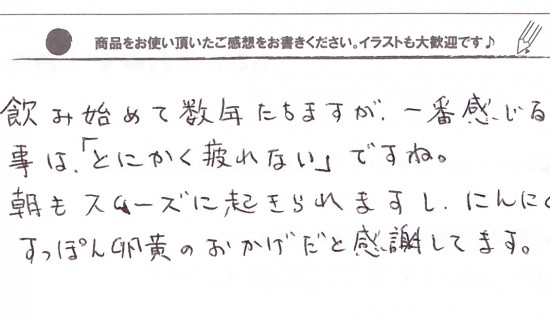 商品をお使い頂いたご感想をお書きください。イラストも大歓迎です♪
飲み始めて数年たちますが、一番感じる
事は、「とにかく疲れない」ですね。
朝もスムーズに起きられますし、にんにく
すっぽん卵黄のおかげだと感謝してます。